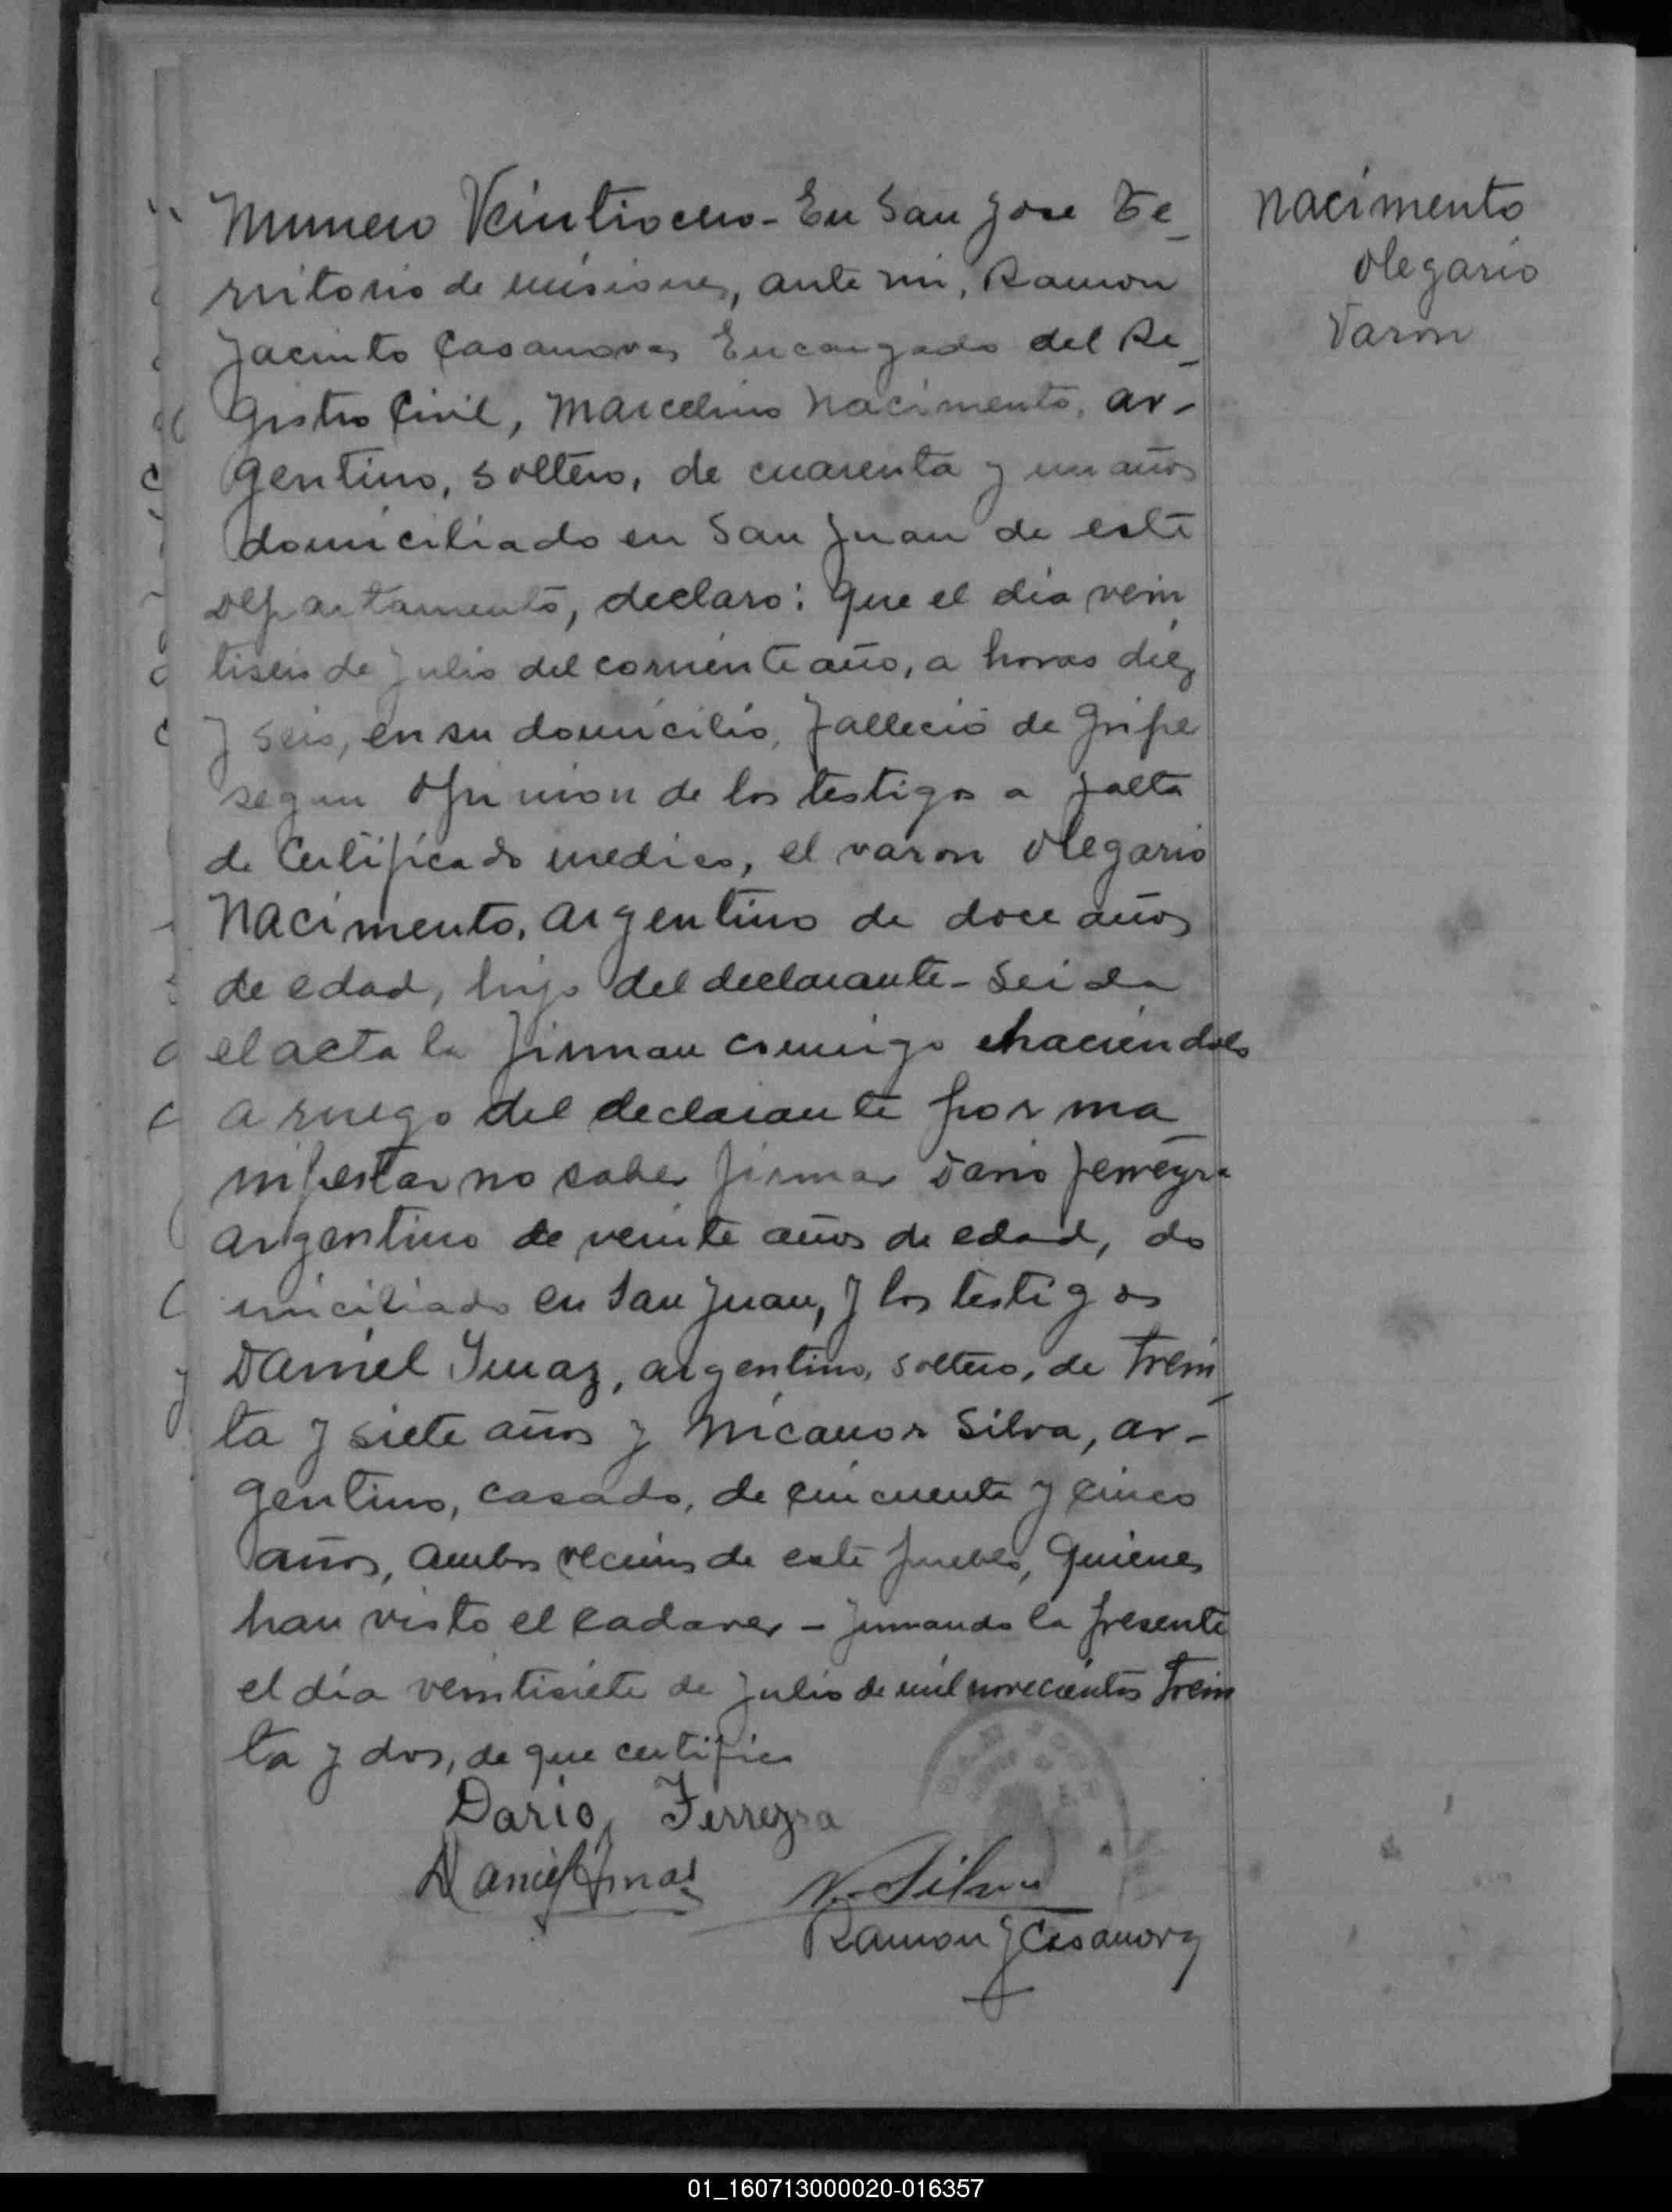 Numero Veintiocho - En San Jose Te_
rritorio de Misiones, ante mi, Ramon
Jacinto Casanova, Encargado del Re_
gistro Civil, Marcelino Nacimento, ar-
gentino, soltero, de cuarenta y un años
domiciliado en San Juan de este
Departamento, declaro: Que el dia vein_
tiseis de Julio del corriente año, a horas diez
y seis, en su domicilio, falleció de Gripe
segun opinion de los testigos a falta
de Certificado medico, el varon Olegario
Nacimento, argentino de doce años
de edad, hijo del declarante - Leida
el acta la firman conmigo haciendolo
a ruego del declarante por ma_
nifestar no saber firmar Dario Ferreyra
argentino de veinte años de edad, do
miciliado en San Juan, y los testigos
Daniel Ymaz, argentino, soltero, de trein_
ta y siete años y Nicanor Silva, ar-
gentino, casado, de cincuenta y cinco
años, ambos vecinos de este pueblo, quienes
han visto el cadaver - firmando la presente
el dia veintisiete de Julio de mil novecientos trein
ta y dos, de que certifico
Dario Ferreyra
Daniel Ymaz
N. Silva
Ramon J Casanova
Nacimento
Olegario
Varon
01_160713000020-016357